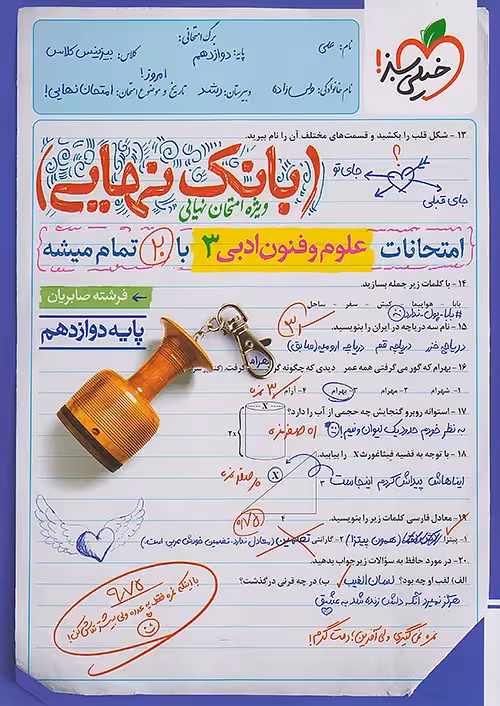 برگ امتحانی:
نام: علی
پایه: دوازدهم
کلاس: بیزینس کلاس
امروز!
نام خانوادگی:
دبیرستان: رشد
تاریخ و موضوع امتحان: امتحان نهایی!
خیلی سبز!
۱۳ - شکل قلب را بکشید و قسمت‌های مختلف آن را نام ببرید.
؟
جای تو
جای قبلی
(بانک نهایی)
ویژه امتحان نهایی
امتحانات علوم و فنون ادبی ۳ با ۲۰ تمام میشه
۱۴ - با کلمات زیر جمله بسازید.
فرشته صابریان
بابا - هواپیما - کیش - سفر - ساحل
#بابا_پول_نداره
۱۵ - نام سه دریاچه در ایران را بنویسید.
پایه دوازدهم
دریاچه خزر دریاچه قم دریاچه ارومیه (سابق)
۱۶ - بهرام که گور می‌گرفتی همه عمر دیدی که چگونه گور بهرام گرفت.
۱- شهرام ۲- مهرام ۳- بهرام ۴- آرام
۱۷ - استوانه روبرو گنجایش چه حجمی از آب را دارد؟
X
2x
به نظر خودم حدود یک لیوان و نیم!
۱۸ - با توجه به قضیه فیثاغورث X را بیابید.
ایناهاش پیداش کردم اینجاست
X
۳
۴
۱۹ - معادل فارسی کلمات زیر را بنویسید.
۱- پیتزا (همون پیتزا) ۲- گارانتی تضمین (معادل ندارد. تضمین خودش عربی است)
۲۰ - در مورد حافظ به سؤالات زیر جواب بدهید.
الف) لقب او چه بود؟ لسان الغیب ب) در چه قرنی درگذشت؟
هرگز نمیرد آنکه دلش زنده شد به عشق
۹/۷۵
نمره نمی‌گیری ولی آفرین! دمت گرم!